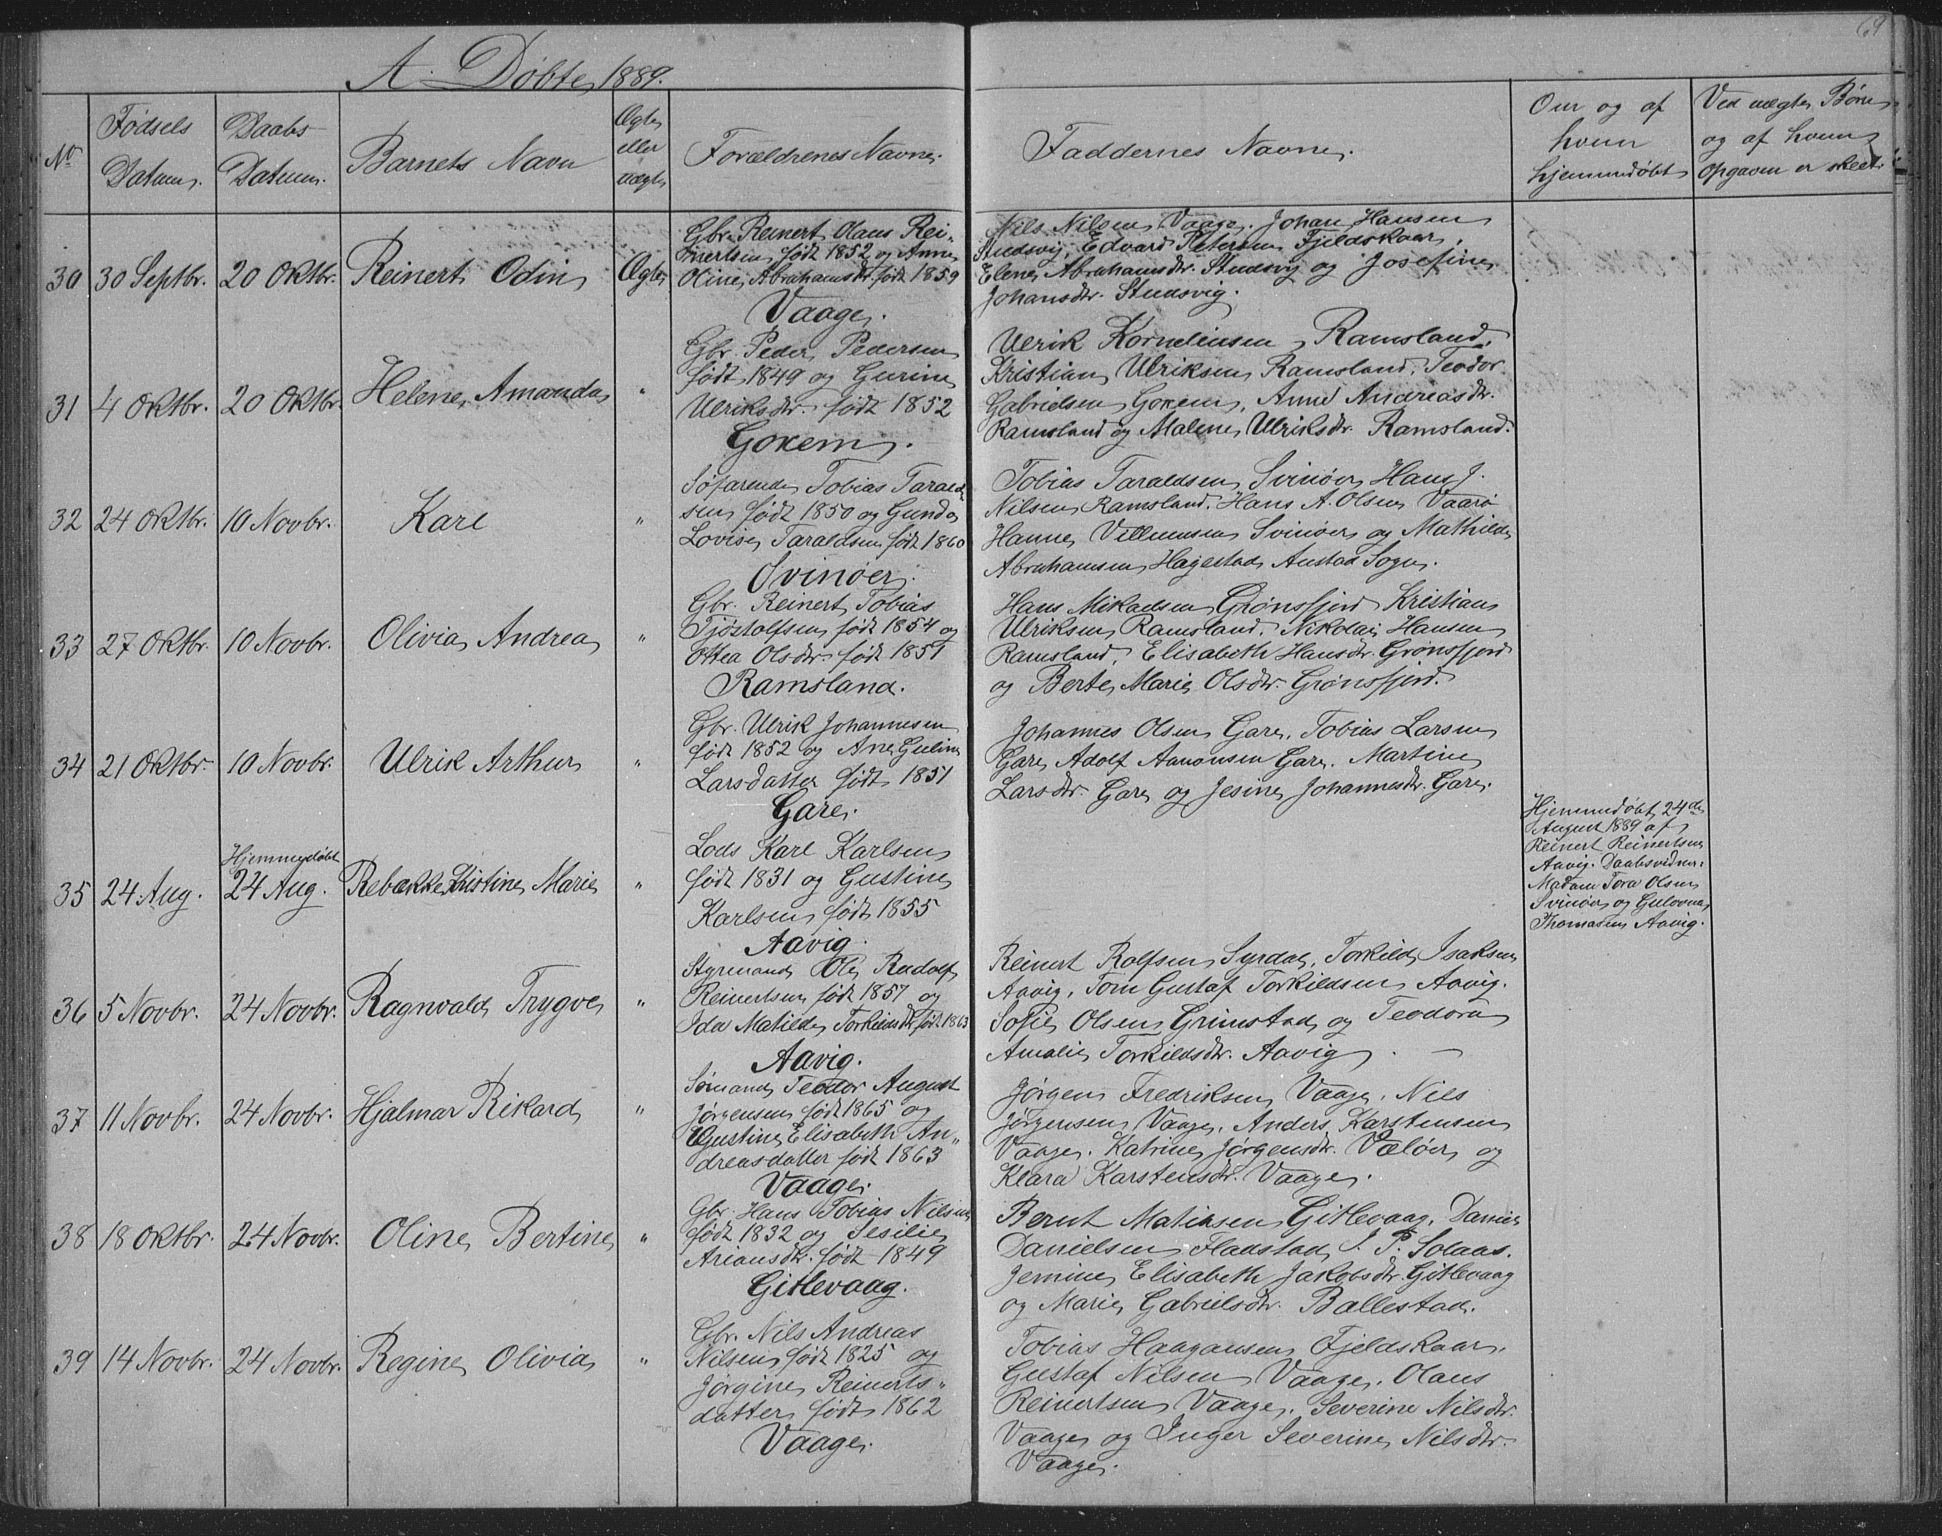 69
A. Döbte 1889.
No
Födsels Datum.
Daabs Datum.
Barnets Navn
Ægte eller uægte
Forældrenes Navne.
Faddernes Navne.
Om og af hvem hjemmedöbt
Ved uægte Börn og af hvem opgaven er skeet.
30 30 Septbr. 20 Oktbr. Reinert Odin Ægte
Gbr. Reinert Olaus Rei-
nertsen født 1852 og Anne
Oline Abrahamsdtr født 1859
Vaage.
Nils Nilsen Vaage. Johan Hansen
Studsvig, Edvard Petersen Fjeldskaar,
Elene Abrahamsdtr. Studsvig og Josefine
Johansdtr. Studsvig.
31 4 Oktbr. 20 Oktbr. Helene Amanda "
Gbr. Peder Pedersen
født 1849 og Gurine
Ulriksdtr. født 1852
Gokem.
Ulrik Korneliusen Ramsland.
Kristian Ulriksen Ramsland. Teodor
Gabrielsen Gokem, Anne Andreasdtr.
Ramsland og Malene Ulriksdtr. Ramsland.
32 24 Oktbr. 10 Novbr. Karl "
Søfarende Tobias Tarald
sen født 1850 og Gunda
Lovise Taraldsen født 1860
Svinøer.
Tobias Taraldsen Svinøer Hans J.
Nilsen Ramsland. Hans A. Olsen Vaarø
Hanne Villumsen Svinøer og Mathilde
Abrahamsen Hagestad Austad Sogn.
33 27 Oktbr. 10 Novbr. Olivia Andrea "
Gbr. Reinert Tobias
Tjöstolfsen født 1854 og
Ottea Olsdtr. født 1851
Ramsland.
Hans Mikaelsen Grønsfjord Kristian
Ulriksen Ramsland. Nikolai Hansen
Ramsland. Elisabeth Hansdtr. Grønsfjord
og Berte Marie Olsdtr. Grønsfjord.
34 21 Oktbr. 10 Novbr. Ulrik Arthur "
Gbr. Ulrik Johannesen
født 1852 og Ane Guline
Larsdatter født 1851
Gare.
Johannes Olsen Gare. Tobias Larsen
Gare Adolf Aanonsen Gare. Martine
Larsdtr. Gare og Jesine Johannesdtr. Gare.
35 24 Aug. Hjemmedöbt 24 Aug. Rebækka Kristine Marie "
Lods Karl Karlsen
født 1831 og Gustine
Karlsen født 1855
Aavig.
Hjemmedöbt 24de
August 1889 af
Reinert Reinertsen
Aavig. Daabsvidner:
Madam Tora Olsen
Svinøer og Gulovna
Thomasen Aavig.
36 5 Novbr. 24 Novbr. Ragnvald Trygve "
Styrmand Ole Rudolf
Reinertsen født 1857 og
Ida Matilde Torkildsdtr. født 1863
Aavig.
Reinert Rolfsen Syrdal, Torkild Isaksen
Aavig, Tom Gustaf Torkildsen Aavig.
Sofie Olsen Grimstad og Teodora
Amalie Torkildsdtr. Aavig.
37 11 Novbr. 24 Novbr. Hjalmar Rikard "
Sømand Teodor August
Jørgensen født 1865 og
Gustine Elisabeth An„
dreasdatter født 1863
Vaage.
Jørgen Fredriksen Vaage. Nils
Jørgensen Vaage. Anders Karstensen
Vaage. Katrine Jørgensdtr. Valøer og
Klara Karstensdtr. Vaage.
38 18 Oktbr. 24 Novbr. Oline Bertine "
Gbr. Hans Tobias Nilsen
født 1832 og Sesilie
Ariansdtr. født 1849
Gitlevaag.
Bernt Matiasen Gitlevaag. Daniel
Danielsen Fladstad, J. P. Solaas.
Jemine Elisabeth Jakobsdtr. Gitlevaag
og Marie Gabrielsdtr. Ballestad.
39 14 Novbr. 24 Novbr. Regine Olivia "
Gbr. Nils Andreas
Nilsen født 1825 og
Jørgine Reinerts„
datter født 1862
Vaage.
Tobias Haagansen Fjeldskaar,
Gustaf Nilsen Vaage. Olaus
Reinertsen Vaage. Severine Nilsdtr.
Vaage og Inger Severine Nilsdtr.
Vaage.